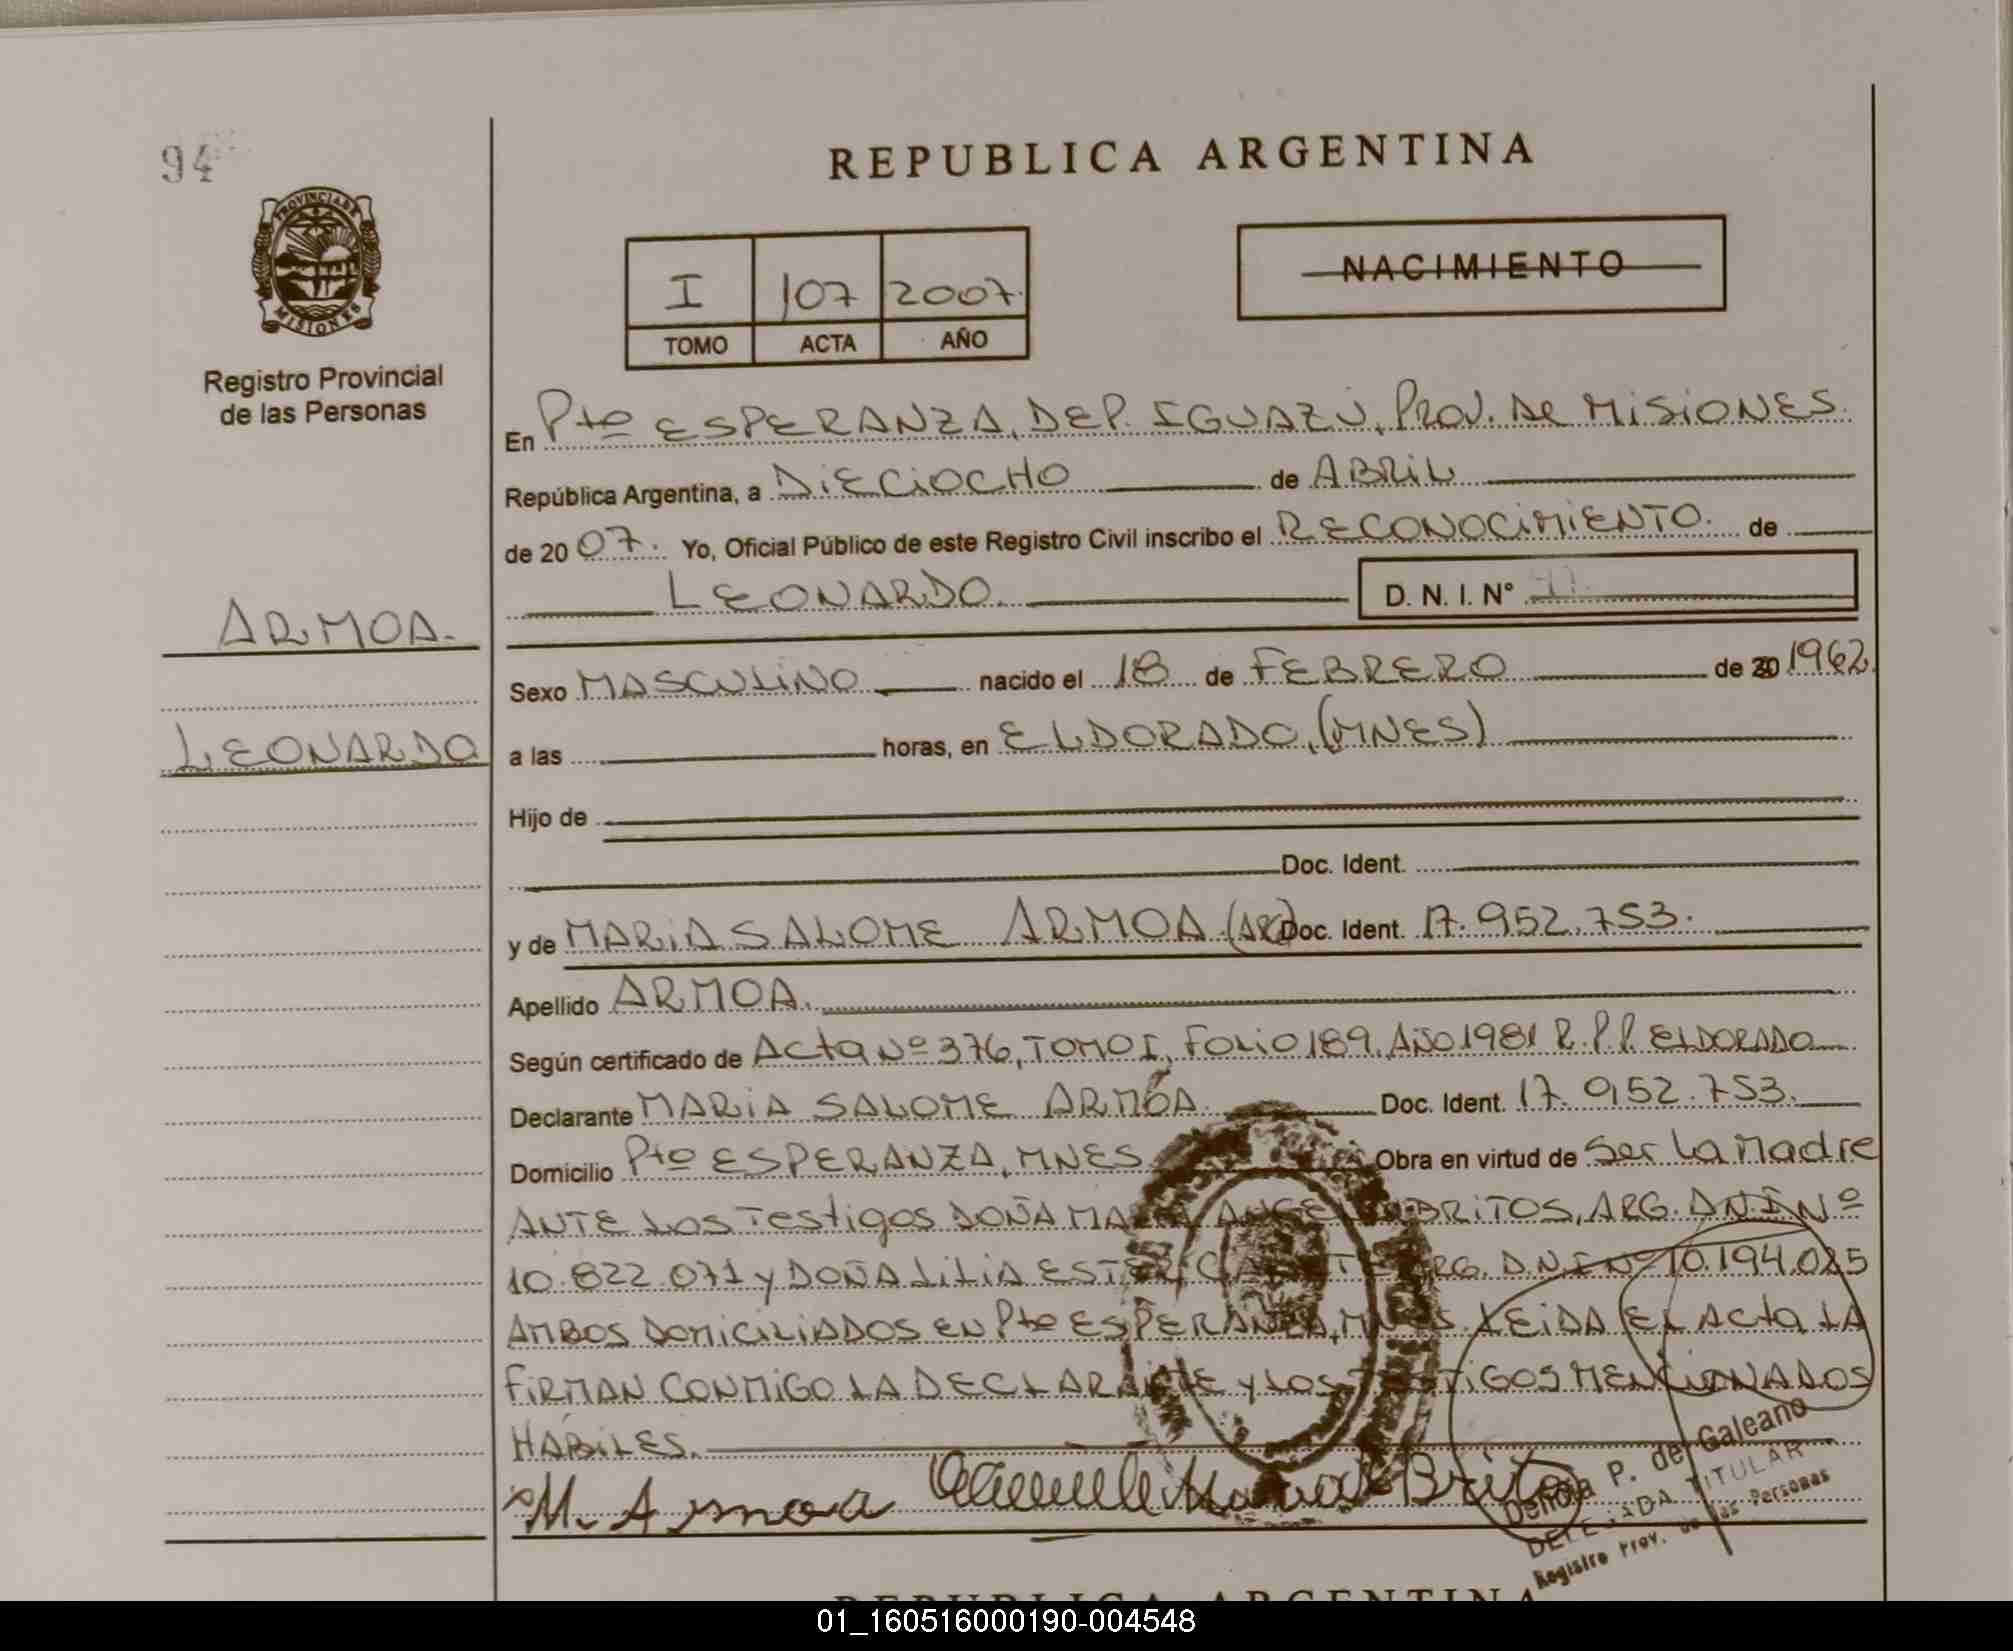 94
REPUBLICA ARGENTINA
PROVINCIA DE
MISIONES
Registro Provincial
de las Personas
I 107 2007.
TOMO ACTA AÑO
NACIMIENTO
En Pto ESPERANZA, DEP. IGUAZU, PROV. DE MISIONES.
República Argentina, a DIECIOCHO de ABRIL
de 2007. Yo, Oficial Público de este Registro Civil inscribo el RECONOCIMIENTO. de
LEONARDO. D. N. I. Nº
ARMOA.
Sexo MASCULINO nacido el 18 de FEBRERO de 20 1962.
LEONARDO
a las horas, en ELDORADO, (MNES)
Hijo de
Doc. Ident.
y de MARIA SALOME ARMOA (AR) Doc. Ident. 17.952.753.
Apellido ARMOA.
Según certificado de Acta Nº 376, TOMO I, FOLIO 189, AÑO 1981 R.P.P. ELDORADO
Declarante MARIA SALOME ARMOA Doc. Ident. 17.952.753.
Domicilio Pto ESPERANZA, MNES Obra en virtud de Ser La Madre
ANTE LOS Testigos DOÑA MARIA BRITOS, ARG. DNI Nº
10.822.071 y DOÑA LILIA ESTER ARG. D.N.I Nº 10.194.025
AMBOS DOMICILIADOS EN Pto ESPERANZA, MNES. LEIDA EL ACTA LA
FIRMAN CONMIGO LA DECLARANTE y LOS TESTIGOS MENCIONADOS
HABILES.
M. Armoa
Denota P. de Galeano
DELEGADA TITULAR
Registro Prov. de las Personas
REPUBLICA ARGENTINA
01_160516000190-004548